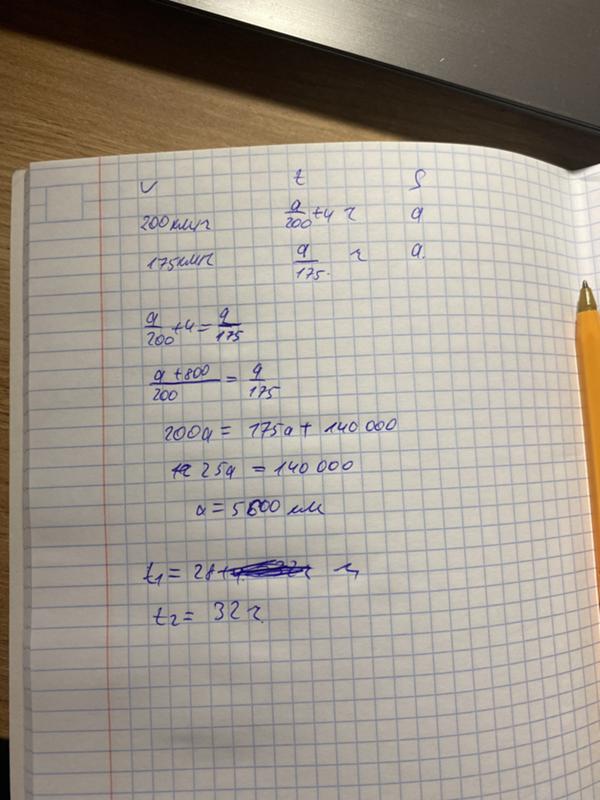 v t S
200 км/ч a/200 + 4 ч a
175 км/ч a/175 ч a
a/200 + 4 = a/175
a + 800/200 = a/175
200a = 175a + 140 000
25a = 140 000
a = 5600 км
t1 = 28 ч
t2 = 32 ч